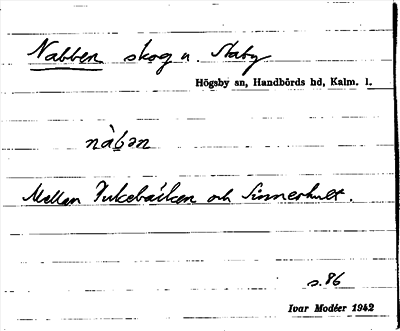 Nabben skog u. Staby
Högsby sn, Handbörds hd, Kalm. l.
nàb̲ən
Mellan Vukebäcken och Sinnerhult.
s. 86
Ivar Modéer 1942